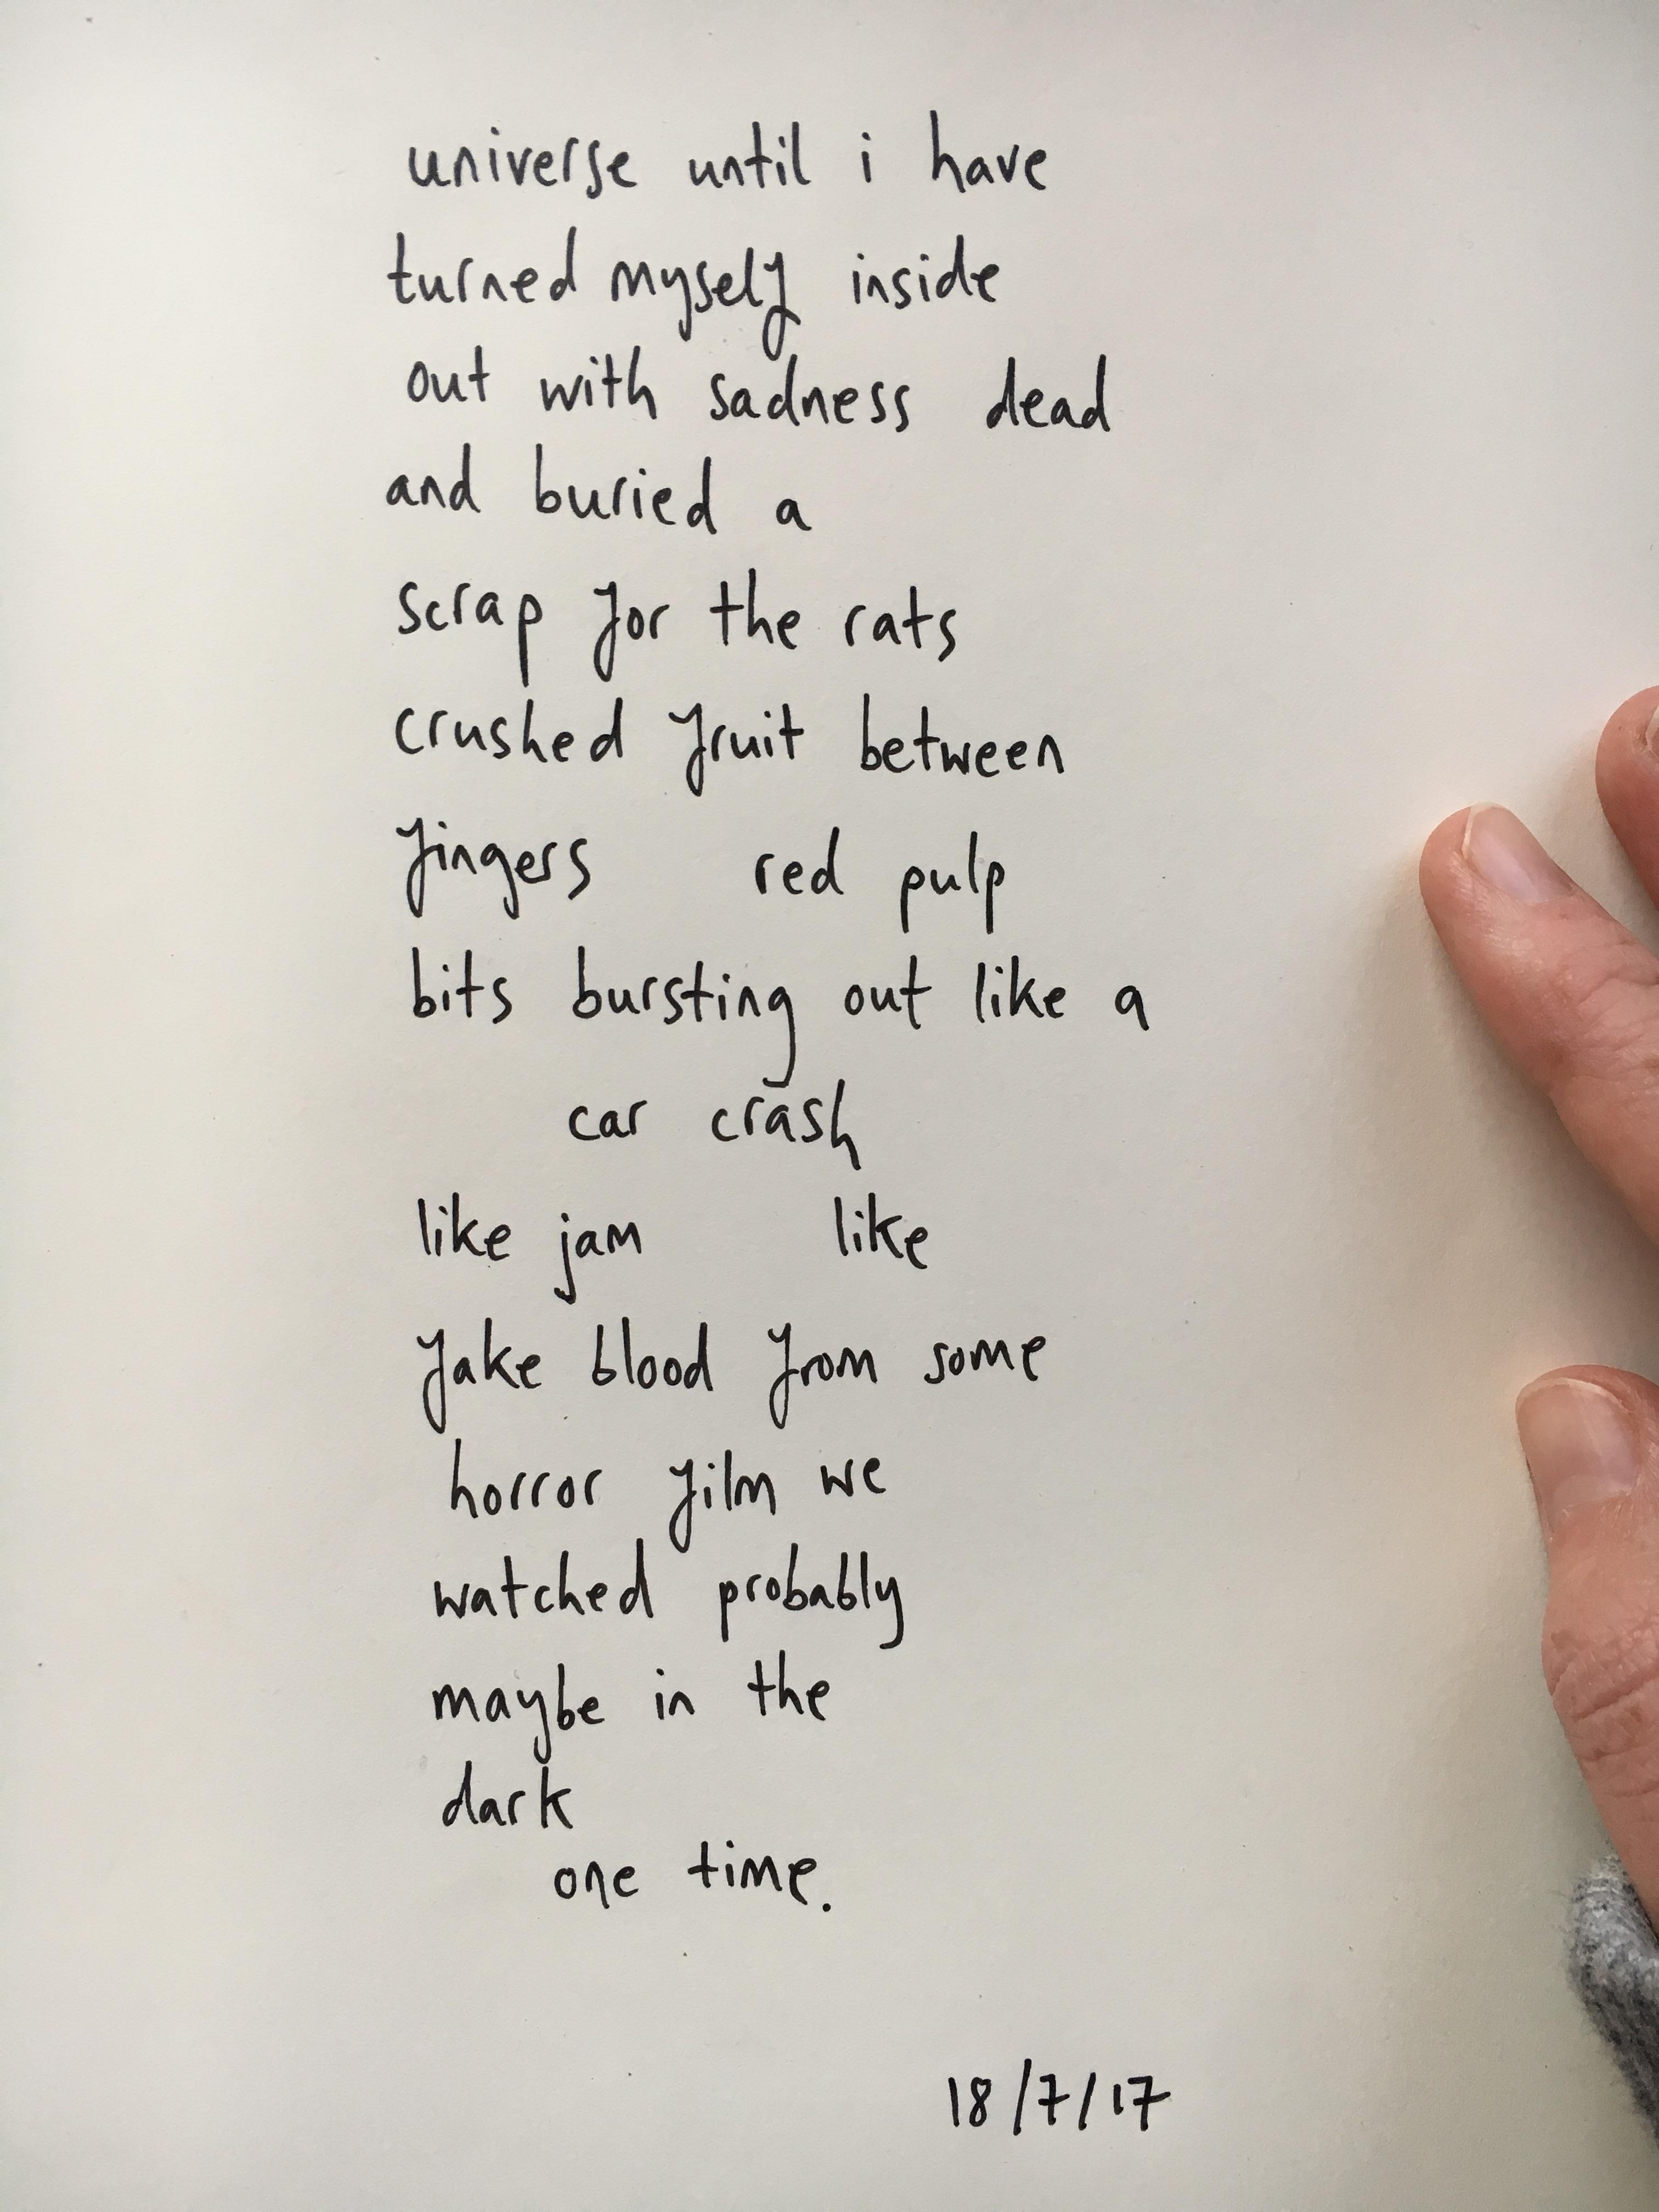 universe until i have
turned myself inside
out with sadness dead
and buried a
scrap for the rats
crushed fruit between
fingers red pulp
bits bursting out like a
car crash
like jam like
fake blood from some
horror film we
watched probably
maybe in the
dark
one time.
18/7/17